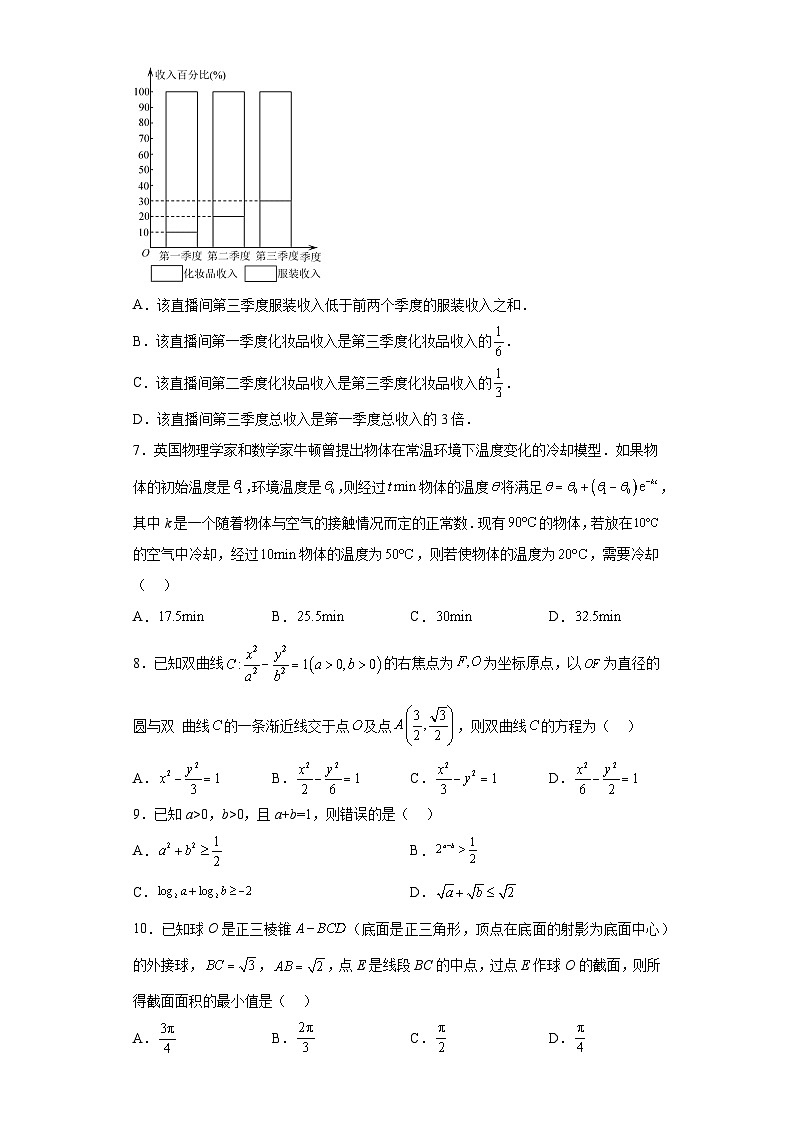 收入百分比(%)
100
90
80
70
60
50
40
30
20
10
O 第一季度 第二季度 第三季度 季度
化妆品收入 服装收入
A.该直播间第三季度服装收入低于前两个季度的服装收入之和.
B.该直播间第一季度化妆品收入是第三季度化妆品收入的1/6.
C.该直播间第二季度化妆品收入是第三季度化妆品收入的1/3.
D.该直播间第三季度总收入是第一季度总收入的 3 倍.
7.英国物理学家和数学家牛顿曾提出物体在常温环境下温度变化的冷却模型.如果物
体的初始温度是θ₁,环境温度是θ₀,则经过t min物体的温度θ将满足θ=θ₀+(θ₁−θ₀)e^(−kt),
其中 k是一个随着物体与空气的接触情况而定的正常数.现有90°C的物体,若放在10°C
的空气中冷却,经过10min物体的温度为50°C,则若使物体的温度为20°C,需要冷却
( )
A.17.5min B.25.5min C.30min D.32.5min
8.已知双曲线C:x²/a²−y²/b²=1(a>0,b>0)的右焦点为F,O为坐标原点,以OF为直径的
圆与双 曲线C的一条渐近线交于点O及点A(3/2,√3/2),则双曲线C的方程为( )
A.x²−y²/3=1 B.x²/2−y²/6=1 C.x²/3−y²=1 D.x²/6−y²/2=1
9.已知 a>0,b>0,且 a+b=1,则错误的是( )
A.a²+b²≥1/2 B.2^(a−b)>1/2
C.log₂a+log₂b≥−2 D.√a+√b≤√2
10.已知球 O 是正三棱锥A−BCD(底面是正三角形,顶点在底面的射影为底面中心)
的外接球,BC=√3,AB=√2,点 E 是线段 BC 的中点,过点 E 作球 O 的截面,则所
得截面面积的最小值是( )
A.3π/4 B.2π/3 C.π/2 D.π/4